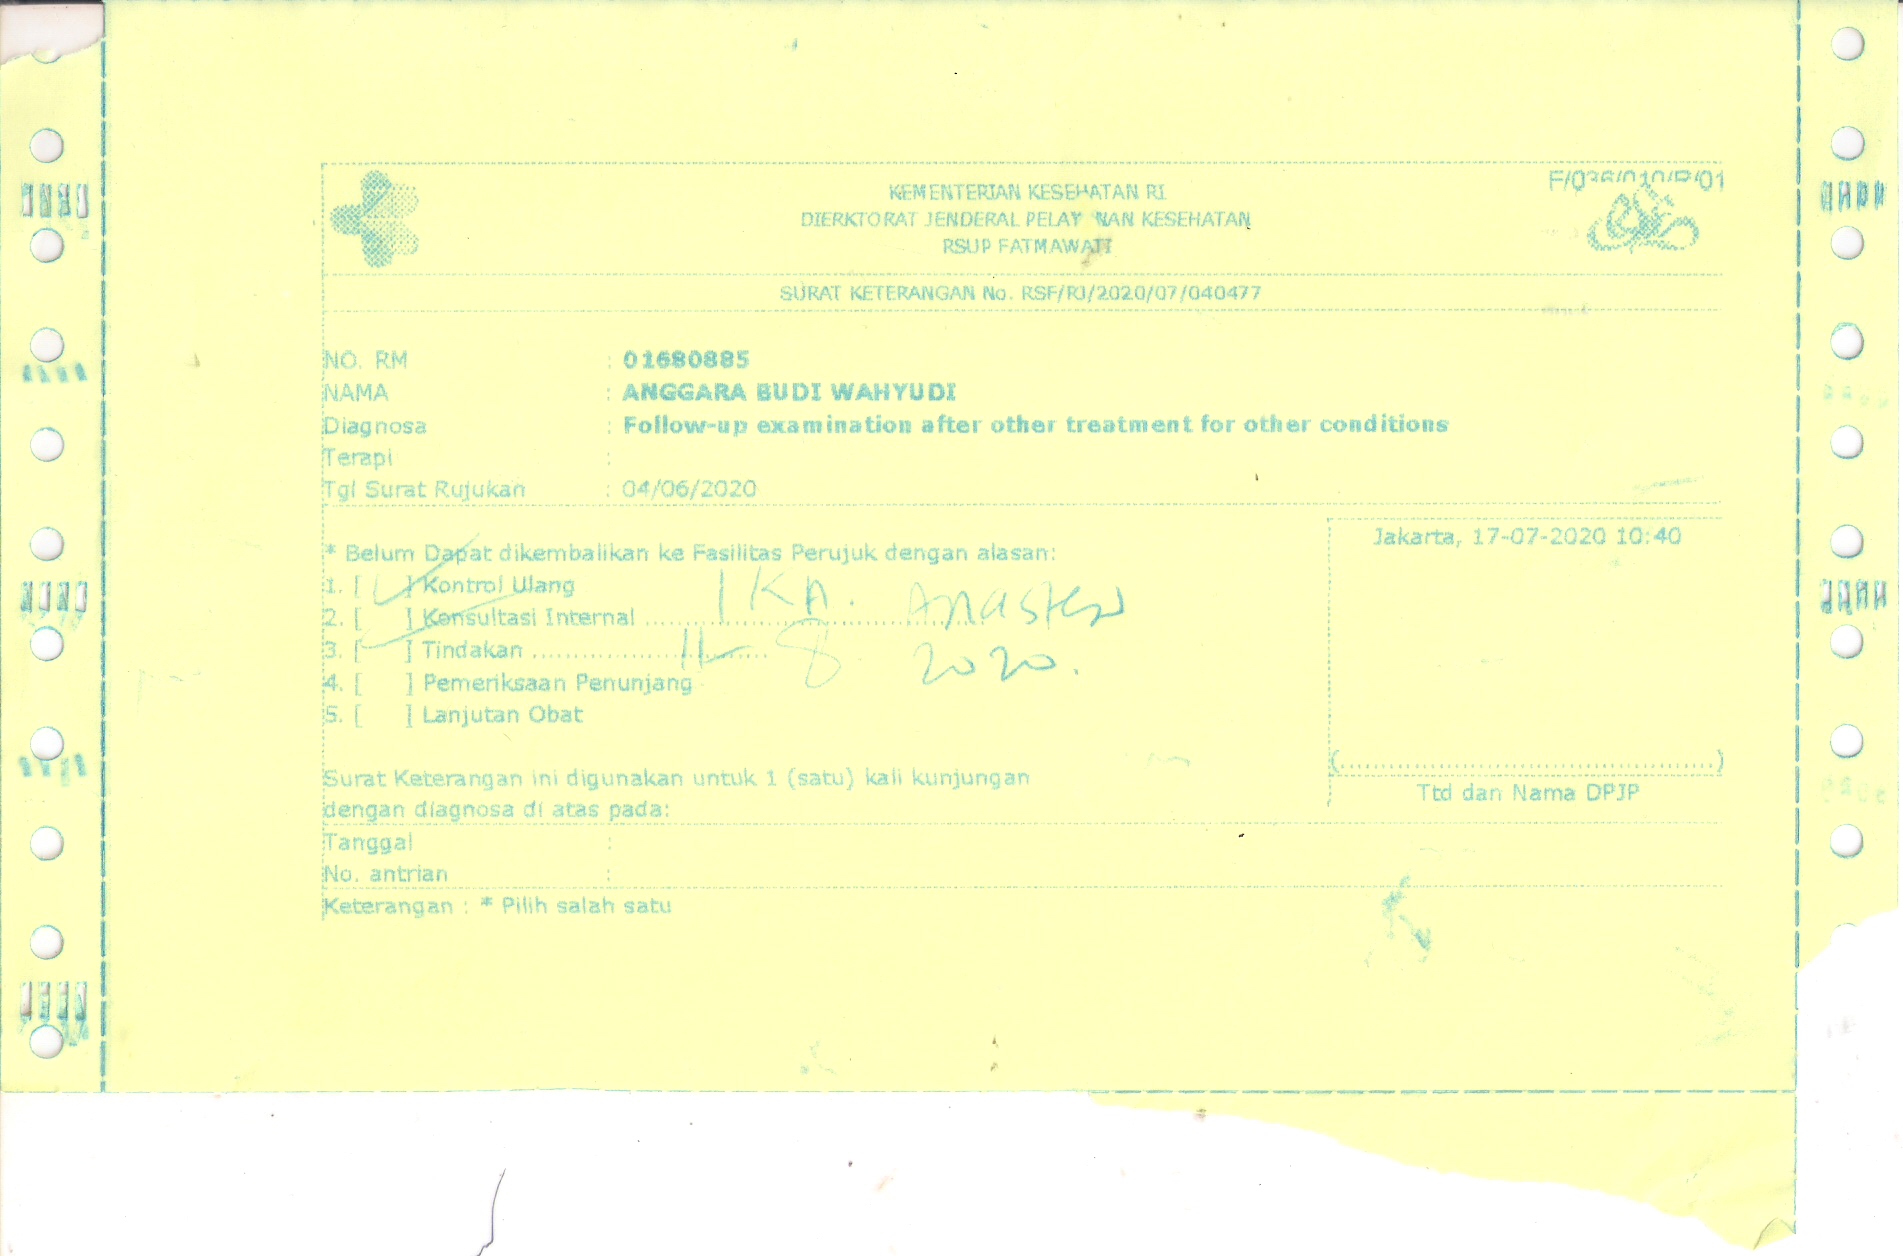 F/036/010/R/01
KEMENTERIAN KESEHATAN RI
DIERKTORAT JENDERAL PELAY NAN KESEHATAN
RSUP FATMAWATI
SURAT KETERANGAN No. RSF/RJ/2020/07/040477
NO. RM : 01680885
NAMA : ANGGARA BUDI WAHYUDI
Diagnosa : Follow-up examination after other treatment for other conditions
Terapi :
Tgl Surat Rujukan : 04/06/2020
Jakarta, 17-07-2020 10:40
* Belum Dapat dikembalikan ke Fasilitas Perujuk dengan alasan:
1. [ ] Kontrol Ulang
2. [ ] Konsultasi Internal .......... IKA.
3. [ ] Tindakan .......... 11-8 2020.
4. [ ] Pemeriksaan Penunjang
5. [ ] Lanjutan Obat
(..........)
Ttd dan Nama DPJP
Surat Keterangan ini digunakan untuk 1 (satu) kali kunjungan
dengan diagnosa di atas pada:
Tanggal :
No. antrian :
Keterangan : * Pilih salah satu